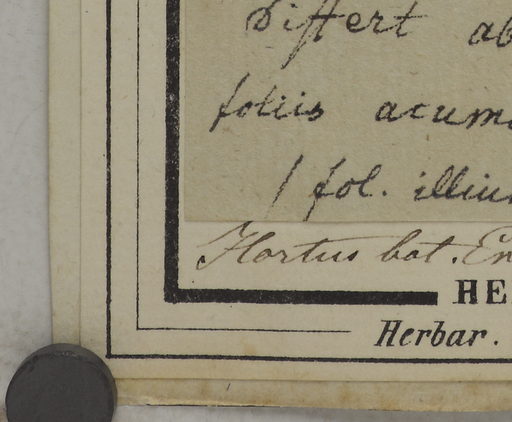 Differt ab
foliis acum
/ fol. illiu
Hortus bot. En
HE
Herbar.